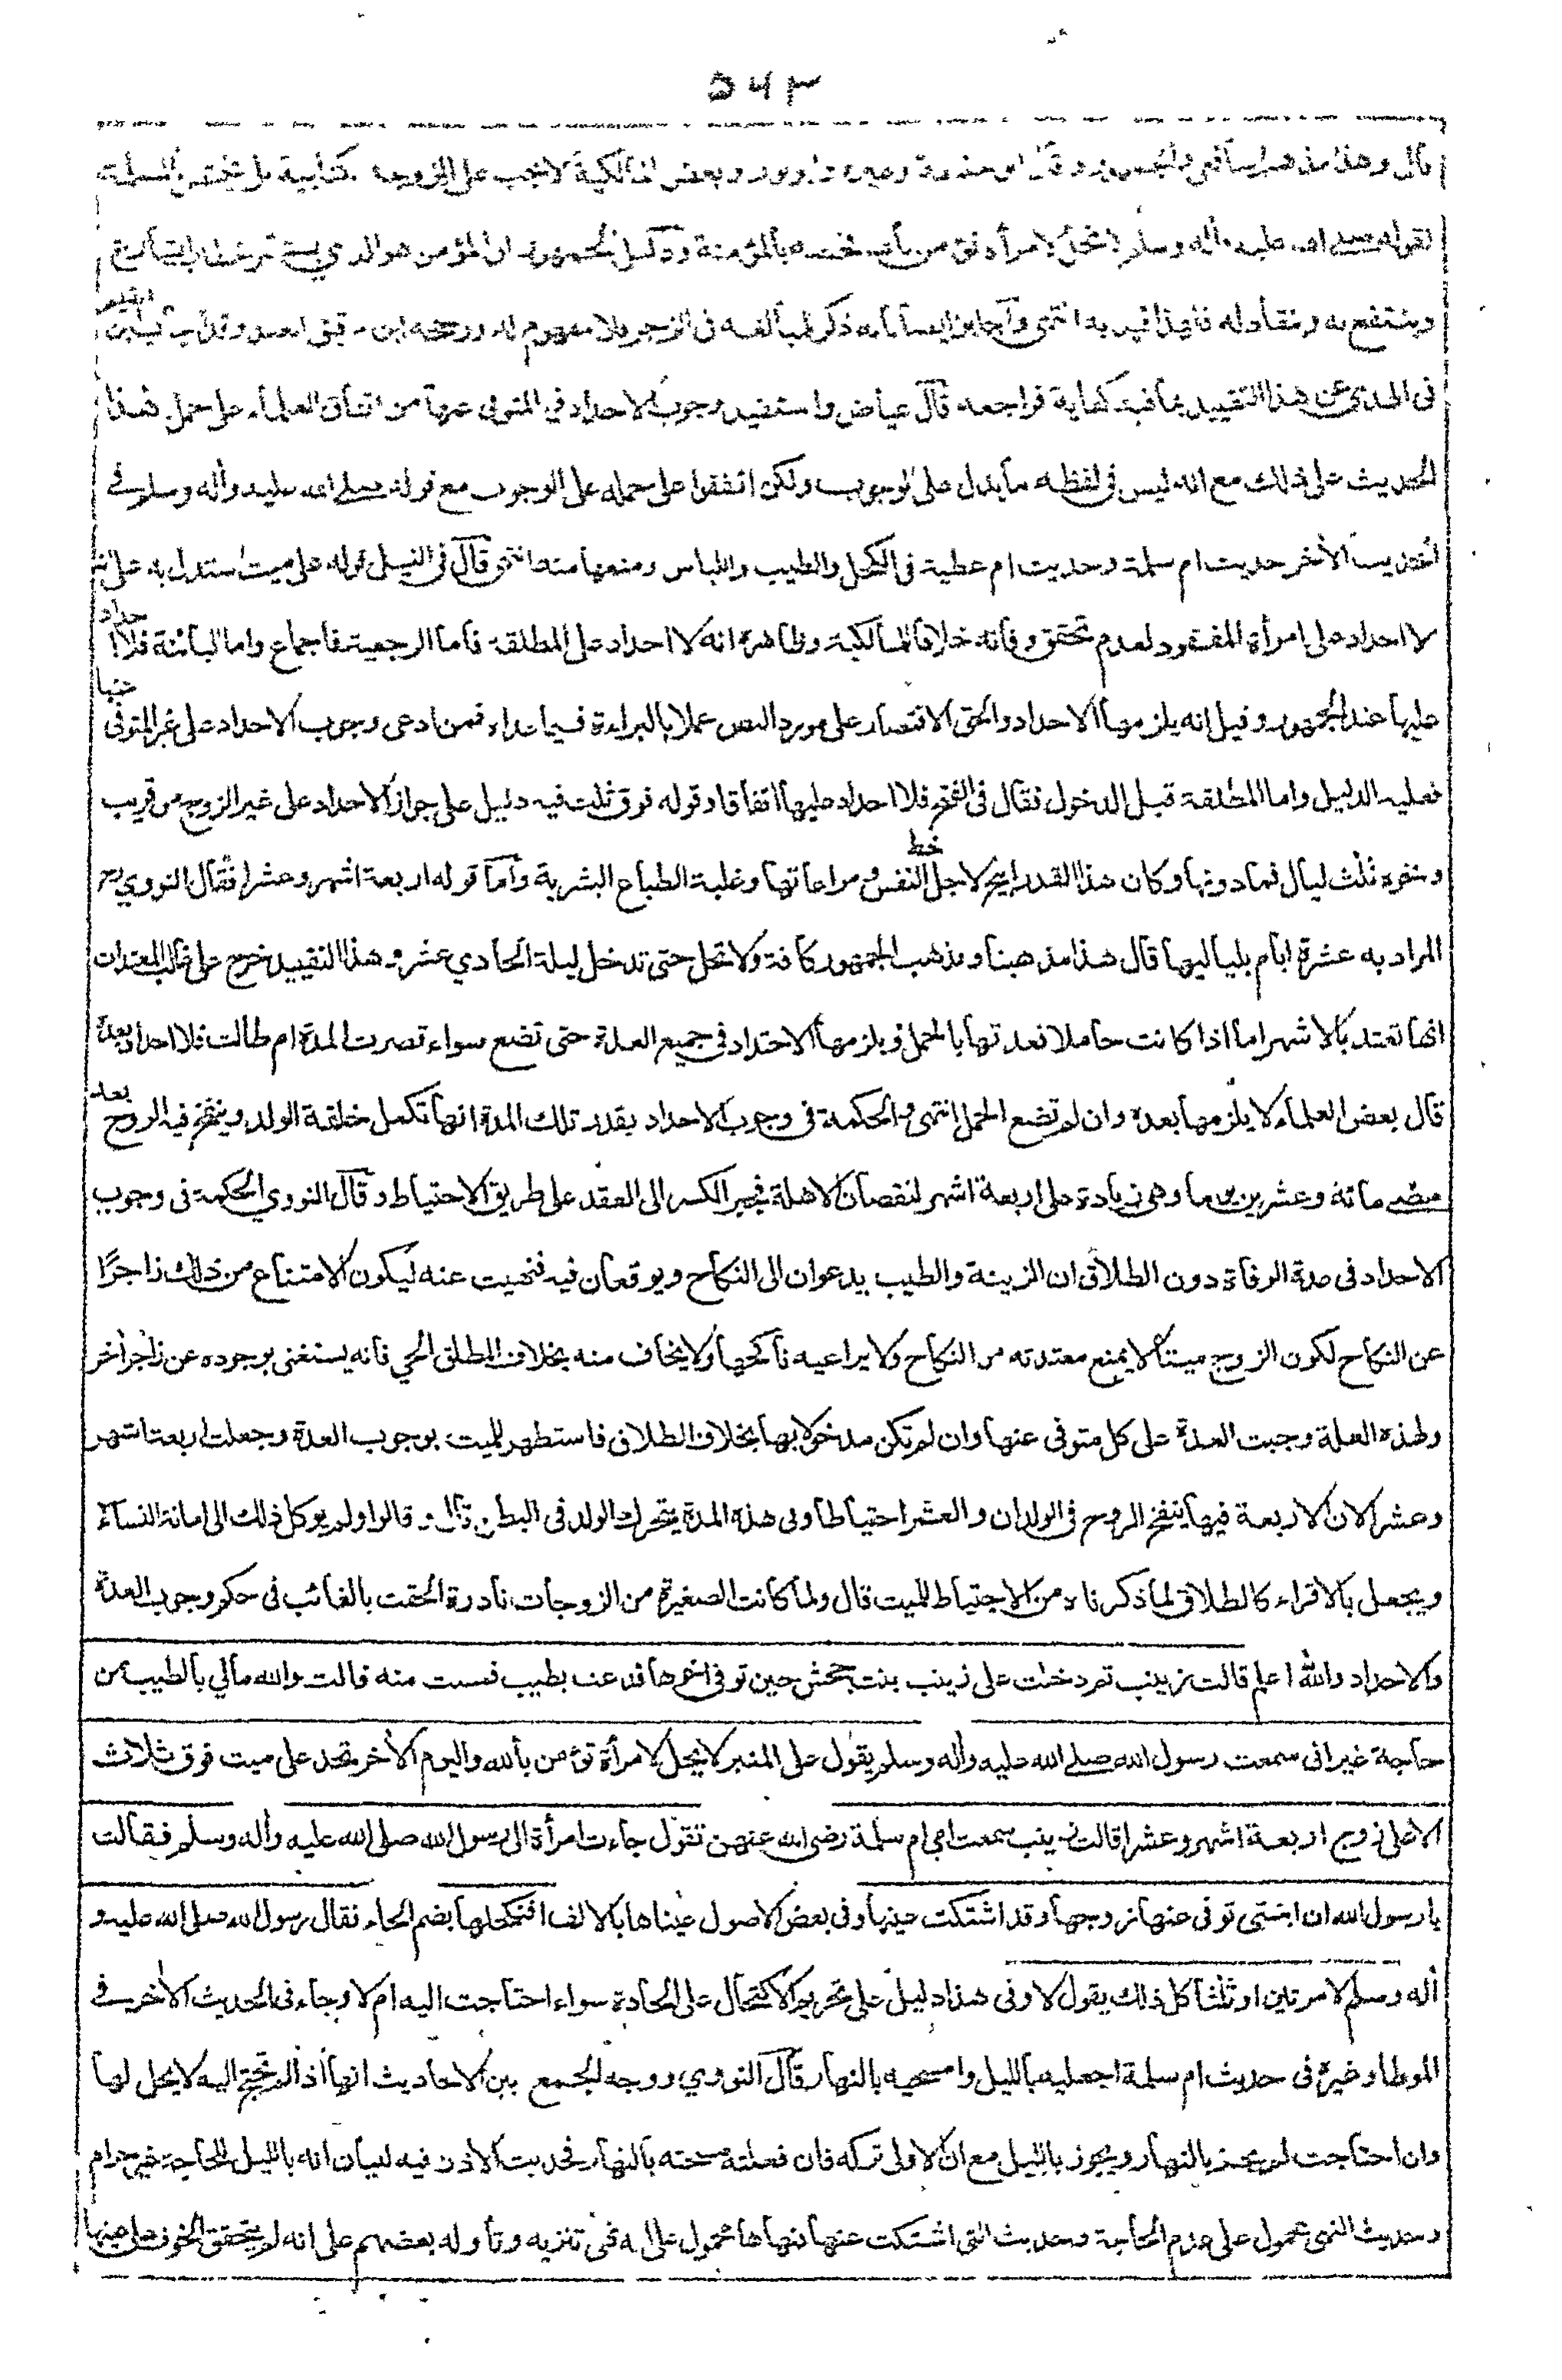 ٥٦٣
قال وهذا مذهب الشافعي والجمهور وقال ابو حنيفة وغيره وابو ثور وبعض المالكية لا تجب على الزوجة الكتابية بل تختص بالمسلمة
لقوله صلى الله عليه وأله وسلم لا تحل لامرأة تؤمن بالله فخصه بالمؤمنة ودليل الجمهور ان المؤمن هو الذي يستثمر خطاب الشارع
وينتفع به وينقاد له فلهذا قيد به انتهى وأجابوا ايضا بانه ذكر للمبالغة في الزجر فلا مفهوم له ورجحه ابن دقيق العيد وقد أجاب ابن القيم
في الهدي عن هذا التقييد بما فيه كفاية فراجعه قال عياض واستفيد وجوب الاحداد في المتوفى عنها من اتفاق العلماء على حمل هذا
الحديث على ذلك مع انه ليس في لفظه ما يدل على الوجوب ولكن اتفقوا على حمله على الوجوب مع قوله صلى الله عليه وأله وسلم في
الحديث الأخر حديث ام سلمة وحديث ام عطية في الكحل والطيب واللباس ومنعها منه انتهى قال في النيل قوله على ميت استدل به على انه
لا احداد على امرأة المفقود لعدم تحقق وفاته خلافا للمالكية وظاهره انه لا احداد على المطلقة فاما الرجعية فاجماع واما البائنة فلا احداد
عليها عند الجمهور وقيل انه يلزمها الاحداد والحق الاقتصار على مورد النص عملا بالبراءة فيما عداه فمن ادعى وجوب الاحداد على غير المتوفى عنها
فعليه الدليل واما المطلقة قبل الدخول فقال في الفتح فلا احداد عليها اتفاقا وقوله فوق ثلث فيه دليل على جواز الاحداد على غير الزوج من قريب
ونحوه ثلث ليال فما دونها وكان هذا القدر ابيح لاجل حظ النفس ومراعاتها وغلبة الطباع البشرية وأما قوله اربعة اشهر وعشرا فقال النووي رح
المراد به عشرة ايام بلياليها قال هذا مذهبنا ومذهب الجمهور كافة ولا تحل حتى تدخل ليلة الحادي عشر وهذا التقييد خرج على غالب المعتدات
انها تعتد بالاشهر اما اذا كانت حاملا فعدتها بالحمل ويلزمها الاحداد في جميع العدة حتى تضع سواء قصرت المدة ام طالت فلا احداد بعده
قال بعض العلماء لا يلزمها بعدة وان لم تضع الحمل انتهى والحكمة في وجوب الاحداد بقدر تلك المدة انها تكمل خلقة الولد وينفخ فيه الروح بعد
مضي مائة وعشرين يوما وهي زيادة على اربعة اشهر لنقصان الاهلة فجبر الكسر الى العقد على طريق الاحتياط وقال النووي الحكمة في وجوب
الاحداد في عدة الوفاة دون الطلاق ان الزينة والطيب يدعوان الى النكاح ويوقعان فيه فنهيت عنه ليكون الامتناع من ذلك زاجرًا
عن النكاح لكون الزوج ميتا لا يمنع معتدته من النكاح ولا يراعيه ناكحها ولا يخاف منه بخلاف المطلق الحي فانه يستغنى بوجوده عن زاجر أخر
ولهذه العلة وجبت العدة على كل متوفى عنها وان لم تكن مدخولا بها بخلاف الطلاق فاستظهر للميت بوجوب العدة وجعلت اربعة اشهر
وعشرا لان الاربعة فيها ينفخ الروح في الولد ان والعشر احتياطا وفي هذه المدة يتحرك الولد في البطن قال وقالوا ولم يوكل ذلك الى امانة النساء
ويجعل بالاقراء كالطلاق لما ذكرناه من الاحتياط للميت قال ولما كانت الصغيرة من الزوجات نادرة الحقت بالغالب في حكم وجوب العدة
والاحداد والله اعلم قالت زينب ثم دخلت على زينب بنت جحش حين توفي اخوها فدعت بطيب فمست منه قالت والله مالي بالطيب من
حاجة غير اني سمعت رسول الله صلى الله عليه وأله وسلم يقول على المنبر لا يحل لامرأة تؤمن بالله واليوم الأخر تحد على ميت فوق ثلاث
الا على زوج اربعة اشهر وعشرا قالت زينب سمعت امي ام سلمة رضى الله عنهن تقول جاءت امرأة الى رسول الله صلى الله عليه وأله وسلم فقالت
يا رسول الله ان ابنتي توفي عنها زوجها وقد اشتكت عينها وفي بعض الاصول عيناها بالالف افنكحلها بضم الحاء فقال رسول الله صلى الله عليه و
أله وسلم لا مرتين او ثلثا كل ذلك يقول لا وفي هذا دليل على تحريم الاكتحال على الحادة سواء احتاجت اليه ام لا وجاء في الحديث الأخر في
الموطا وغيره في حديث ام سلمة اجعليه بالليل وامسحيه بالنهار قال النووي ووجه الجمع بين الاحاديث انها اذا لم تحتج اليه لا يحل لها
وان احتاجت لم يجز بالنهار ويجوز بالليل مع ان الاولى تركه فان فعلته مسحته بالنهار فحديث الاذن فيه لبيان انه بالليل للحاجة غير حرام
وحديث النهي محمول على عدم الحاجة وحديث التي اشتكت عينها فنهاها محمول على انه نهي تنزيه وتأوله بعضهم على انه لم يتحقق الخوف على عينها